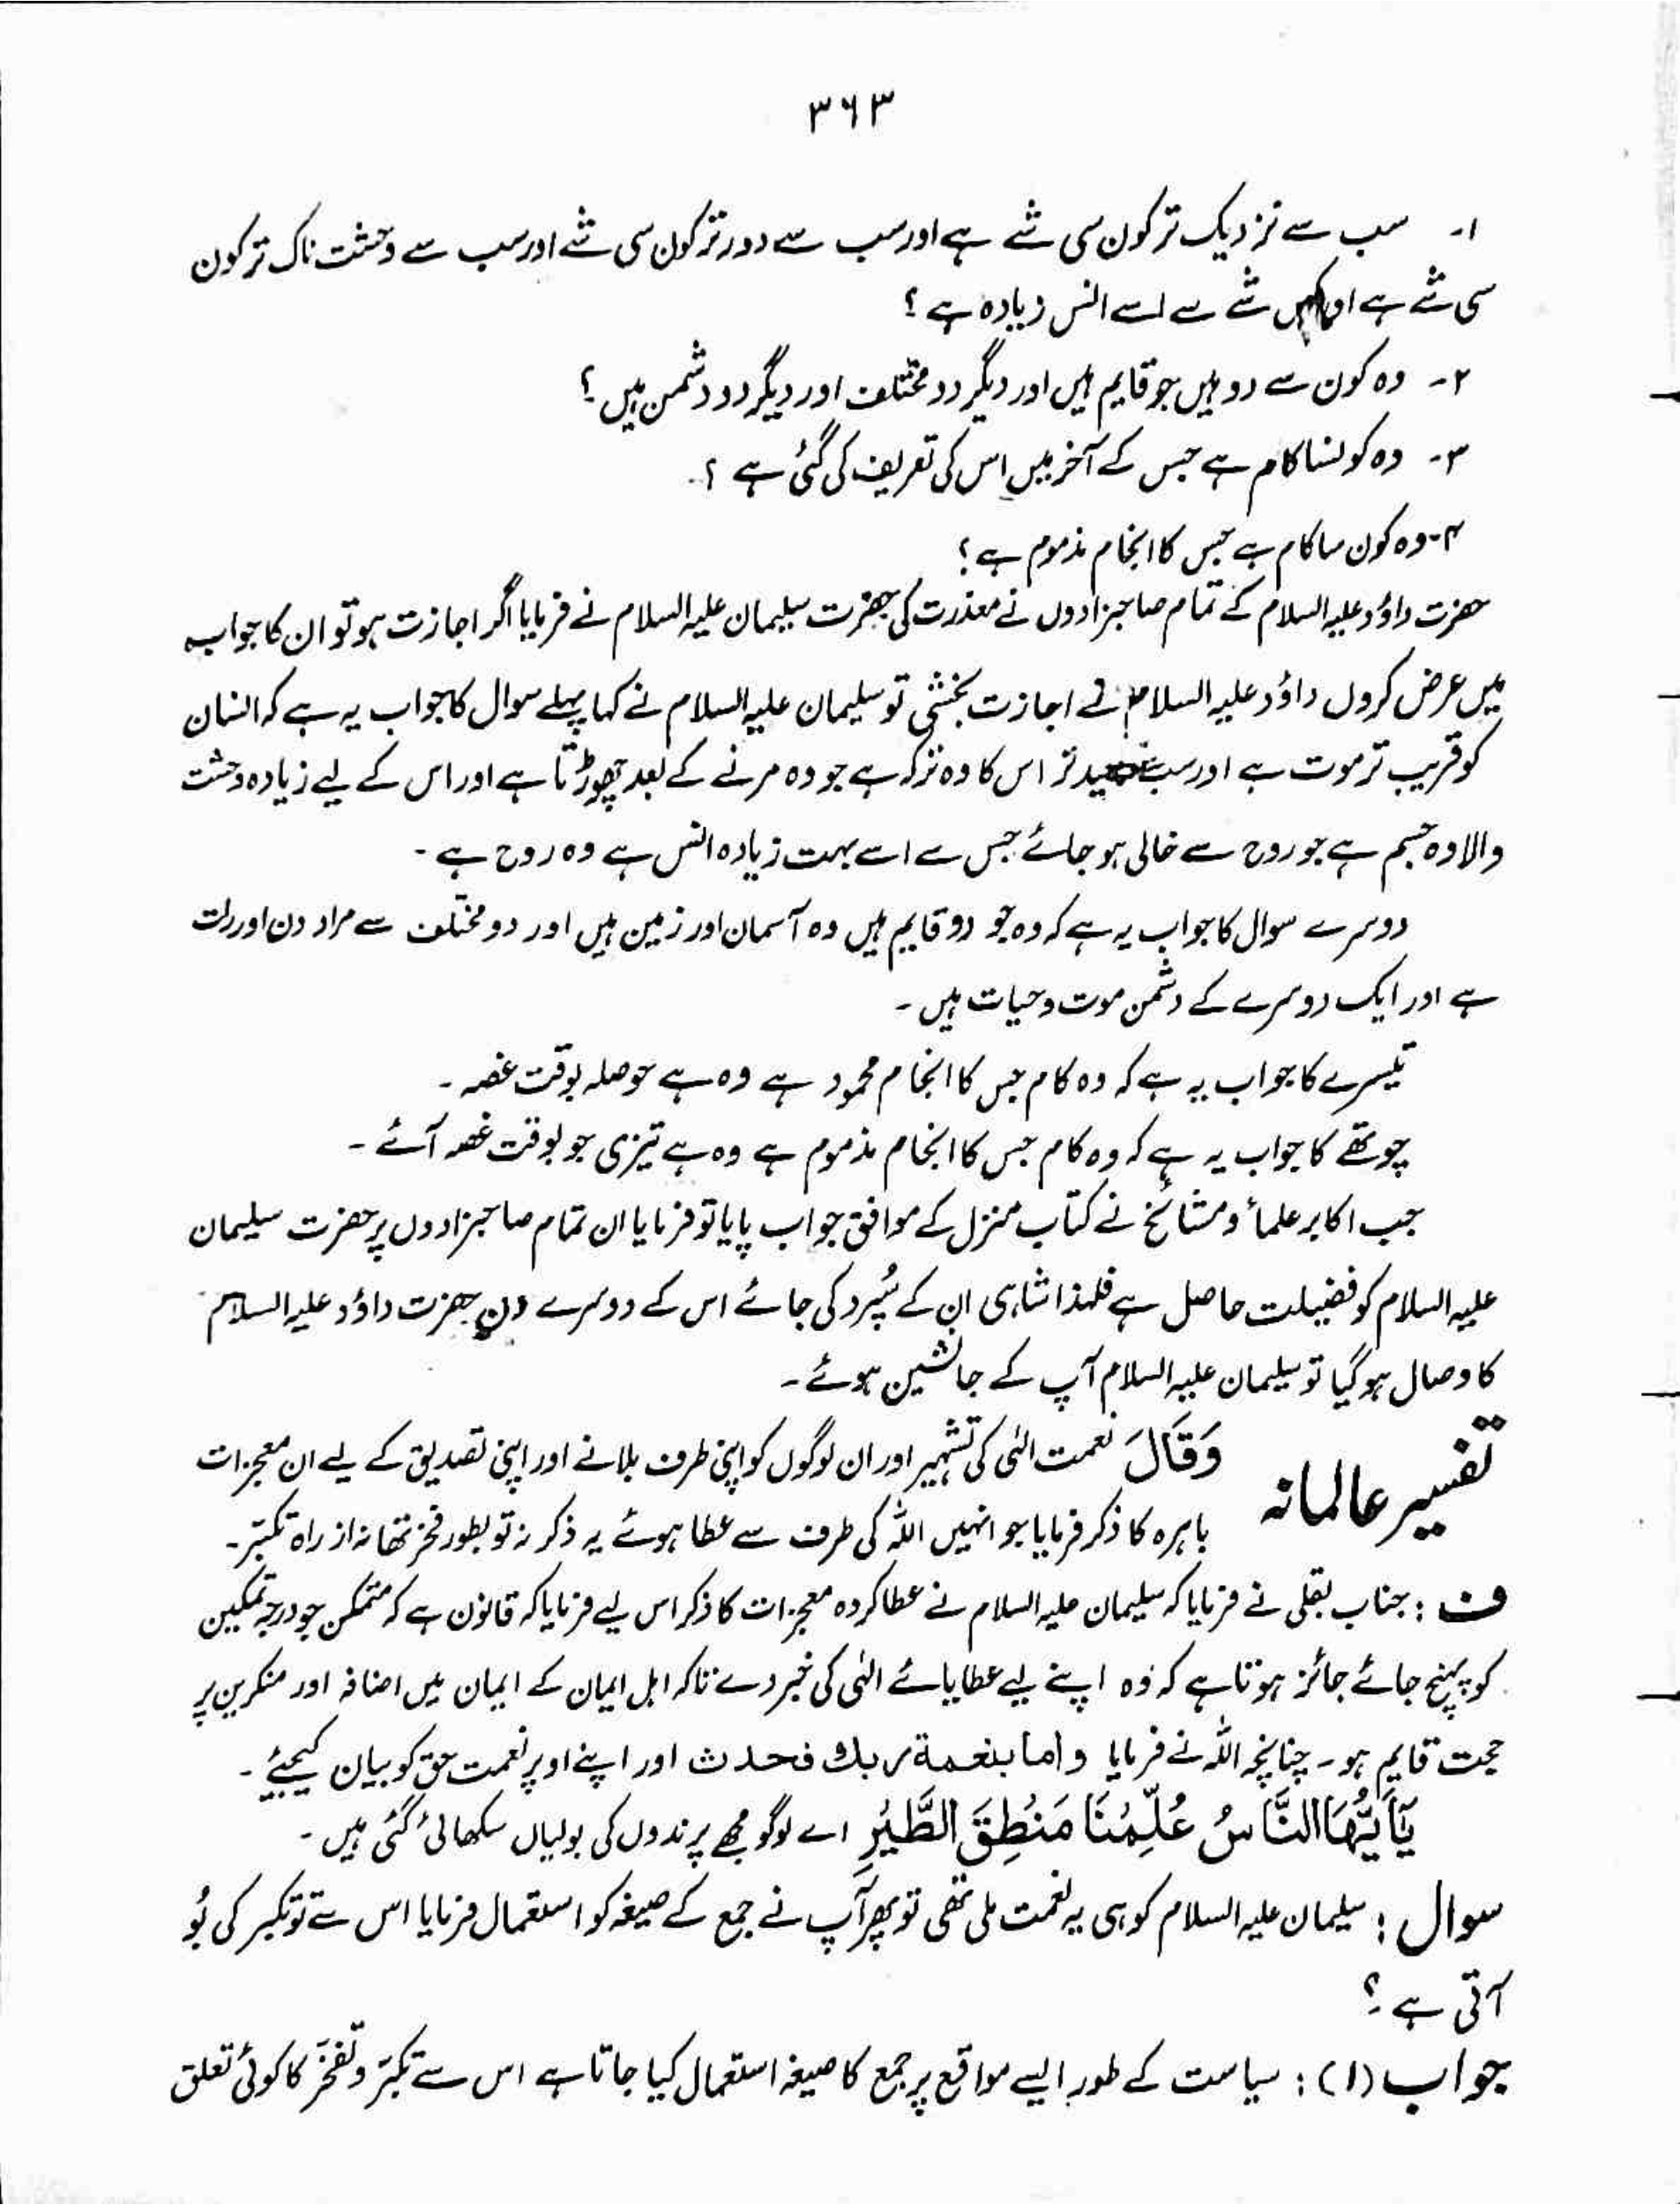 ۳۶۳
۱- سب سے نزدیک تر کون سی شے ہے اور سب سے دور تر کون سی شے اور سب سے وحشت ناک تر کون
سی شے ہے اور کس شے سے اسے انس زیادہ ہے ؟
۲- وہ کون سے دو ہیں جو قایم ہیں اور دیگر دو مختلف اور دیگر دو دشمن ہیں ؟
۳- وہ کونسا کام ہے جس کے آخر میں اس کی تعریف کی گئی ہے ؟
۴- وہ کون سا کام ہے جس کا انجام مذموم ہے ؟
حضرت داؤد علیہ السلام کے تمام صاحبزادوں نے معذرت کی حضرت سلیمان علیہ السلام نے فرمایا اگر اجازت ہو تو ان کا جواب
میں عرض کروں داؤد علیہ السلام نے اجازت بخشی تو سلیمان علیہ السلام نے کہا پہلے سوال کا جواب یہ ہے کہ انسان
کو قریب تر موت ہے اور سب بعید تر اس کا وہ ترکہ ہے جو وہ مرنے کے بعد چھوڑتا ہے اور اس کے لیے زیادہ وحشت
والا وہ جسم ہے جو روح سے خالی ہو جائے جس سے اسے بہت زیادہ انس ہے وہ روح ہے -
دوسرے سوال کا جواب یہ ہے کہ وہ جو دو قایم ہیں وہ آسمان اور زمین ہیں اور دو مختلف سے مراد دن اور رات
ہے اور ایک دوسرے کے دشمن موت و حیات ہیں -
تیسرے کا جواب یہ ہے کہ وہ کام جس کا انجام محمود ہے وہ ہے حوصلہ بوقت غصہ -
چوتھے کا جواب یہ ہے کہ وہ کام جس کا انجام مذموم ہے وہ ہے تیزی جو بوقت غصہ آئے -
جب اکابر علمأ و مشائخ نے کتاب منزل کے موافق جواب پایا تو فرمایا ان تمام صاحبزادوں پر حضرت سلیمان
علیہ السلام کو فضیلت حاصل ہے فلہذا شاہی ان کے سُپرد کی جائے اس کے دوسرے دن حضرت داؤد علیہ السلام
کا وصال ہو گیا تو سلیمان علیہ السلام آپ کے جانشین ہوئے -
تفسیر عالمانہ وَقَالَ نعمت الٰہی کی تشہیر اور ان لوگوں کو اپنی طرف بلانے اور اپنی تصدیق کے لیے ان معجزات
باہرہ کا ذکر فرمایا جو انہیں اللہ کی طرف سے عطا ہوئے یہ ذکر نہ تو بطور فخر تھا نہ از راہ تکبّر -
ف : جناب بقلی نے فرمایا کہ سلیمان علیہ السلام نے عطا کردہ معجزات کا ذکر اس لیے فرمایا کہ قانون ہے کہ متمکن جو درجہ تمکین
کو پہنچ جائے جائز ہوتا ہے کہ وہ اپنے لیے عطایائے الٰہی کی خبر دے تاکہ اہل ایمان کے ایمان میں اضافہ اور منکرین پر
حجت قایم ہو - چنانچہ اللہ نے فرمایا واما بنعمة ربك فحدث اور اپنے اوپر نعمت حق کو بیان کیجئے -
يٰٓاَيُّهَا النَّاسُ عُلِّمْنَا مَنْطِقَ الطَّيْرِ اے لوگو مجھے پرندوں کی بولیاں سکھائی گئی ہیں -
سوال : سلیمان علیہ السلام کو ہی یہ نعمت ملی تھی تو پھر آپ نے جمع کے صیغہ کو استعمال فرمایا اس سے تو تکبر کی بُو
آتی ہے ؟
جواب (۱) : سیاست کے طور ایسے مواقع پر جمع کا صیغہ استعمال کیا جاتا ہے اس سے تکبّر و تفخّر کا کوئی تعلق